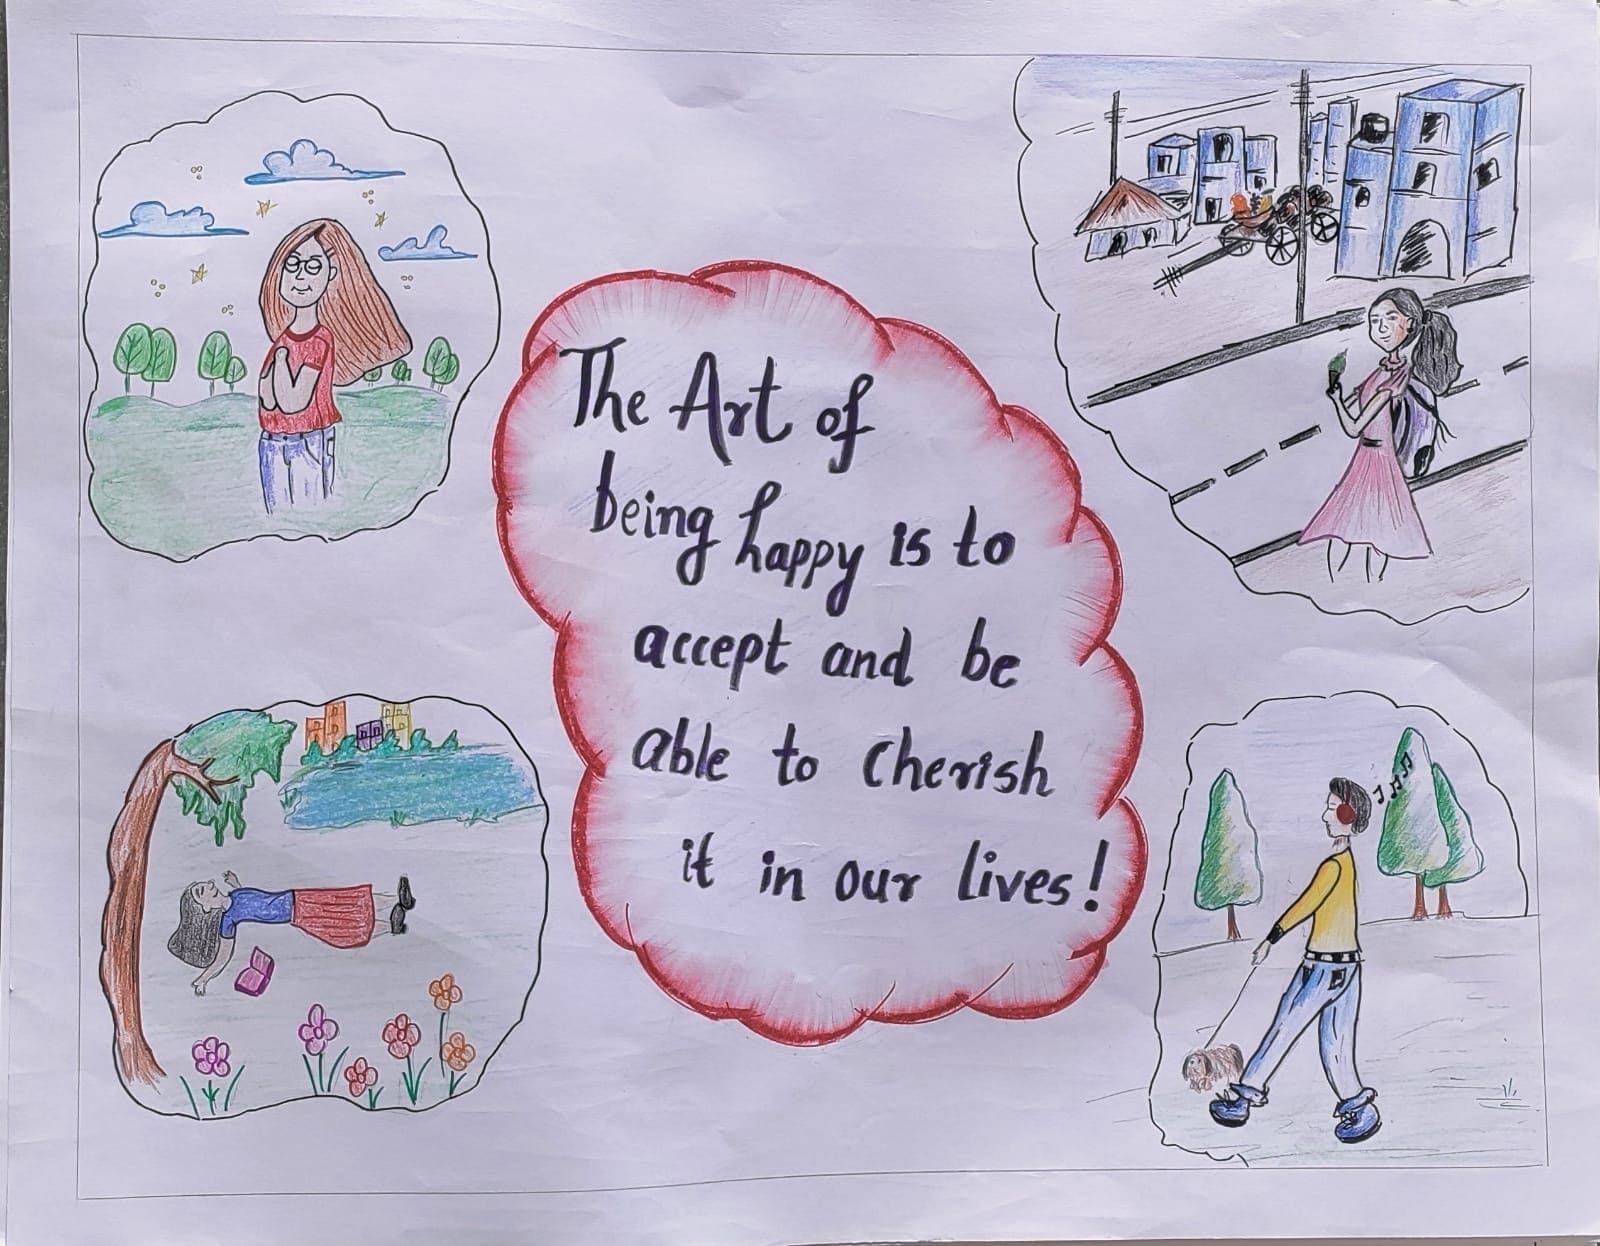 The Art of
being happy is to
accept and be
able to cherish
it in our lives!